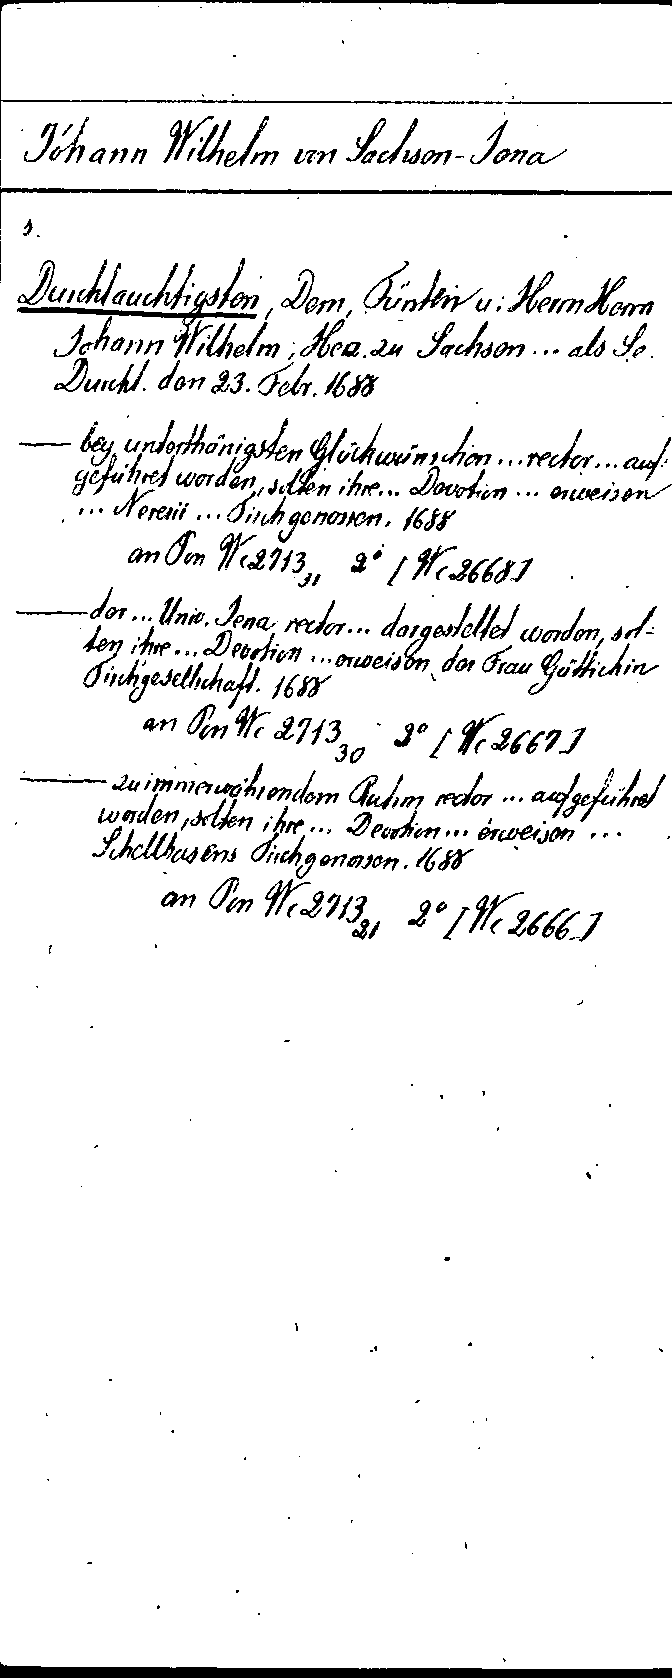 Johann Wilhelm von Sachsen-Jena
s.
Durchlauchtigsten, Dem, Fürsten u. Herrn Herrn
Johann Wilhelm, Herz. zu Sachsen... als Se.
Durchl. den 23. Febr. 1688
— bey unterthänigsten Glückwünschen... rector... auf-
geführet worden, solten ihre... Devotion... erweisen
... Neresii... Tischgenossen. 1688
an Pon Wc 2713 31 2° [Wc 2668]
— der... Univ. Jena rector... dargestellet worden, sol-
ten ihre... Devotion... erweisen der Frau Göttichin
Tischgesellschaft. 1688
an Pon Wc 2713 30 2° [Wc 2667]
— zu immerwährendem Ruhm rector... aufgeführet
worden, solten ihre... Devotion... erweisen...
Schellhasens Tischgenossen. 1688
an Pon Wc 2713 21 2° [Wc 2666]